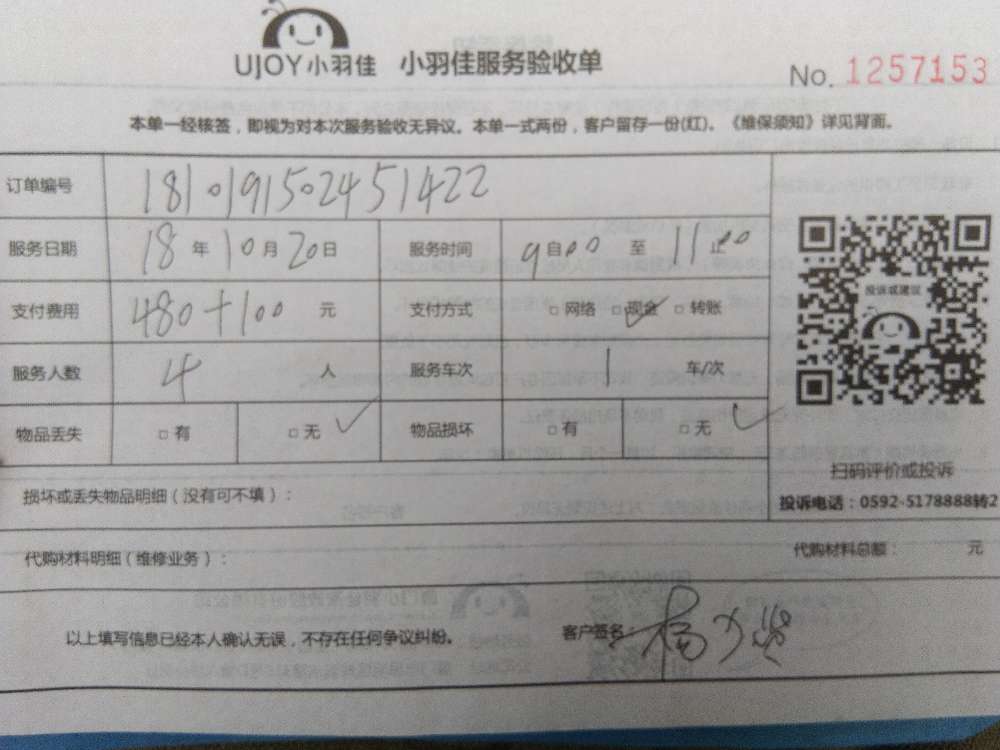 UJOY小羽佳 小羽佳服务验收单
No. 1257153
本单一经核签，即视为对本次服务验收无异议。本单一式两份，客户留存一份(红)。《维保须知》详见背面。
订单编号 1810191502451422
服务日期 18 年 10 月 20 日 服务时间 9 自 00 至 11 止 00
支付费用 480+100 元 支付方式 □ 网络 □ 现金 ✓ □ 转账
服务人数 4 人 服务车次 1 车/次
物品丢失 □ 有 □ 无 ✓ 物品损坏 □ 有 □ 无 ✓
投诉或建议
扫码评价或投诉
投诉电话：0592-5178888转2
损坏或丢失物品明细（没有可不填）：
代购材料明细（维修业务）： 代购材料总额： 元
以上填写信息已经本人确认无误，不存在任何争议纠纷。 客户签名：杨少